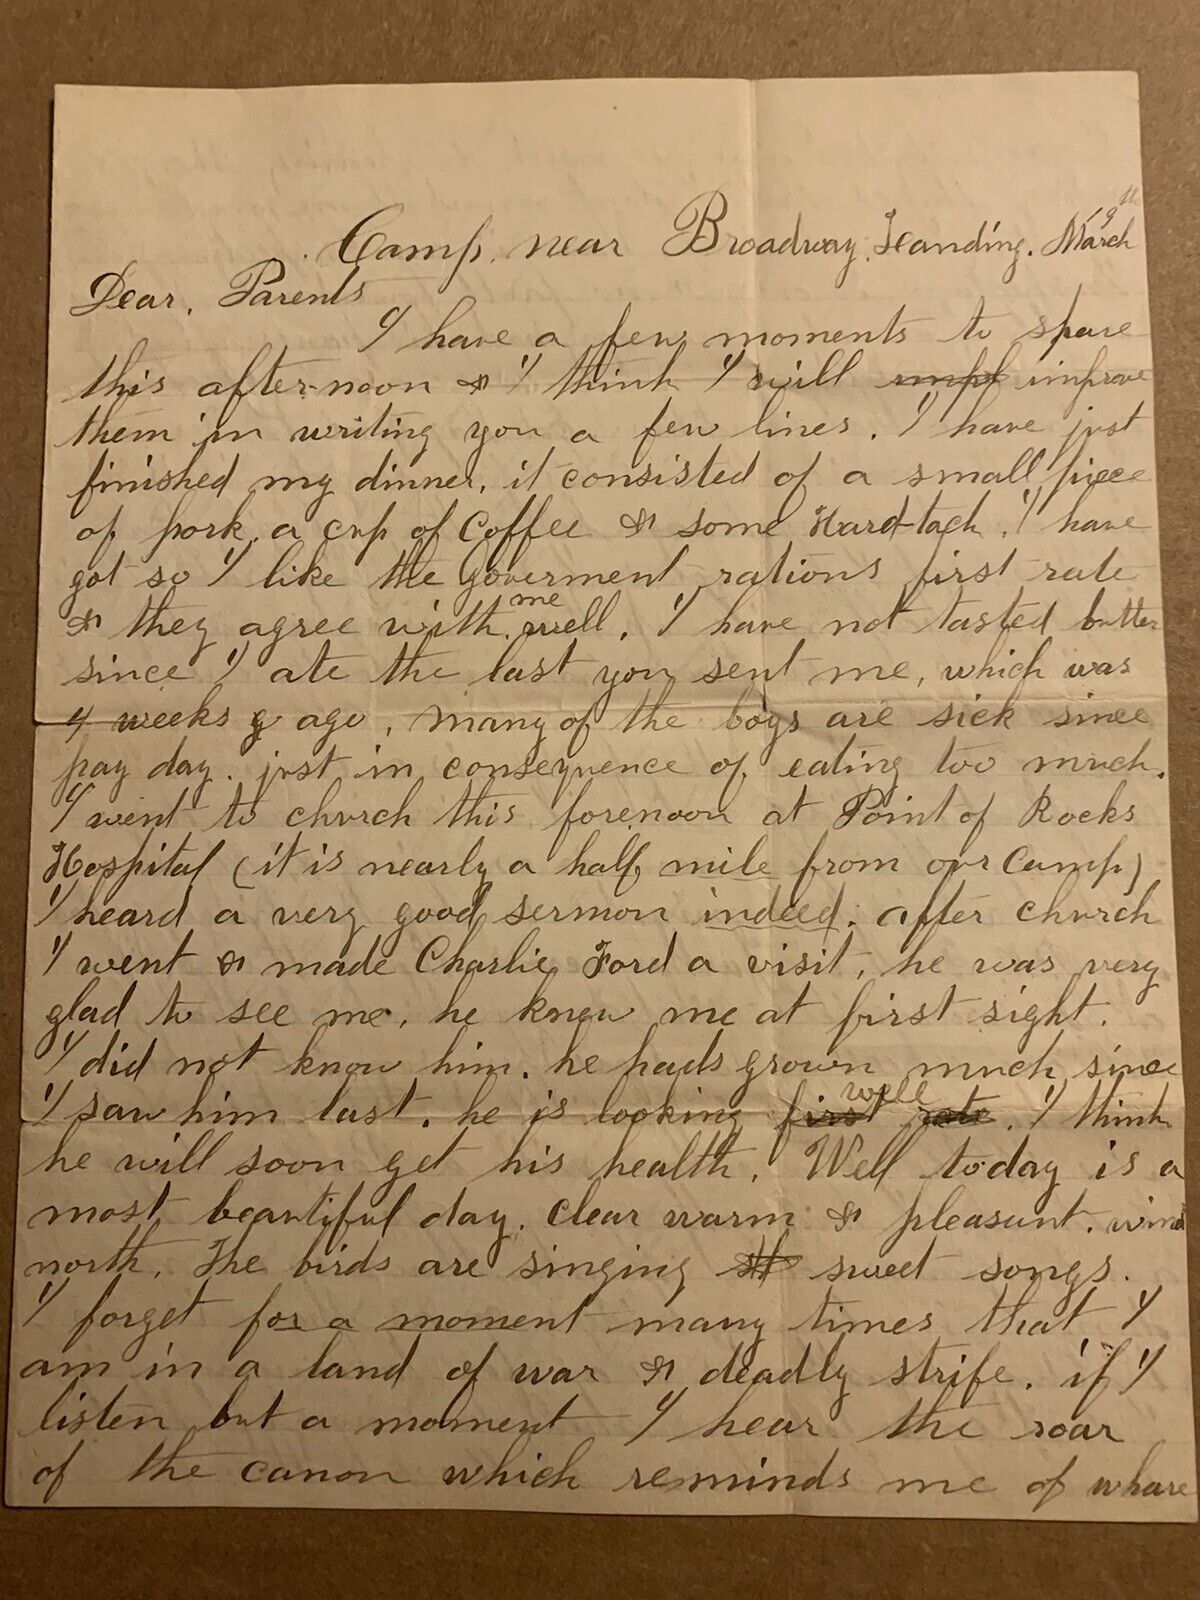 Camp. near Broadway. Landing. March 19th
Dear. Parents
I have a few moments to spare
this after-noon & I think I will impl improve
them in writing you a few lines. I have just
finished my dinner. it consisted of a small piece
of pork. a cup of Coffee & some Hard-tack. I have
got so I like the Goverment rations first rate
& they agree with me well. I have not tasted butter
since I ate the last you sent me, which was
4 weeks g ago. many of the boys are sick since
pay day. just in consequence of eating too much.
I went to church this forenoon at Point of Rocks
Hospital (it is nearly a half mile from our Camp)
I heard a very good sermon indeed. after church
I went & made Charlie Ford a visit. he was very
glad to see me. he knew me at first sight.
I did not know him. he hads grown much since
I saw him last. he is looking first rate well. I think
he will soon get his health. Well today is a
most beautiful day. Clear warm & pleasant. wind
north. The birds are singing sweet songs.
I forget for a moment many times that I
am in a land of war & deadly strife. if I
listen but a moment I hear the roar
of the canon which reminds me of whare